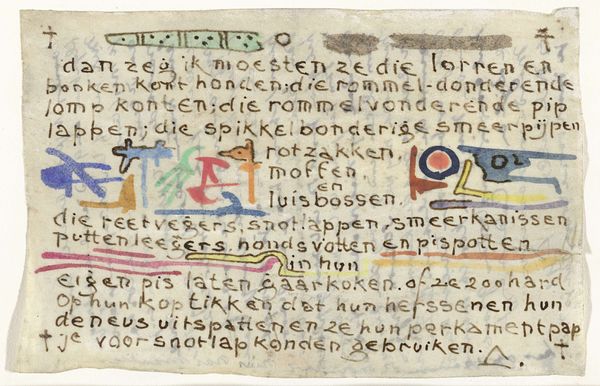 dan zeg ik moesten ze die lorren en
bonken kont honden; die rommel-donderende
lomp konten; die rommelvonderende pip
lappen; die spikkelbonderige smeerpijpen
rotzakken,
moffen
en
luisbossen.
die reetvegers, snotlappen, smeerkanissen
puttenleegers, hondsvotten en pispotten
in hun
eigen pis laten gaarkoken. of ze zoo hard
op hun kop tikken dat hun herssenen hun
de neus uitspatten en ze hun perkamentpap
je voor snotlap konden gebruiken.